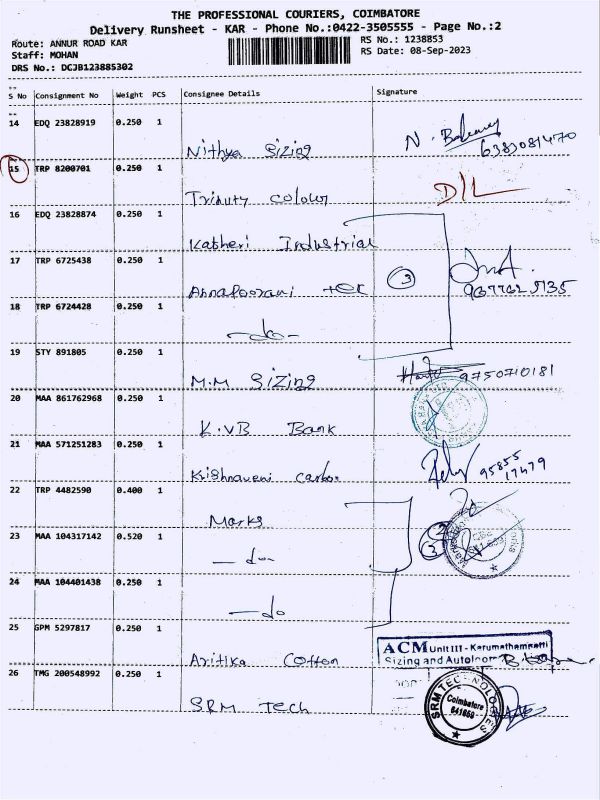 THE PROFESSIONAL COURIERS, COIMBATORE
Delivery Runsheet - KAR - Phone No.:0422-3505555 - Page No.:2
Route: ANNUR ROAD KAR RS No.: 1238853
Staff: MOHAN RS Date: 08-Sep-2023
DRS No.: DCJB123885302
S No Consignment No Weight PCS Consignee Details Signature
14 EDQ 23828919 0.250 1
Nithya Sizing 6383081470
15 TRP 8200701 0.250 1
Trinuty colour D/L
16 EDQ 23828874 0.250 1
Katheri Industrial
17 TRP 6725438 0.250 1
Annapoorani tex 3
18 TRP 6724428 0.250 1
-do-
19 STY 891805 0.250 1
M.M Sizing 9750710181
20 MAA 861762968 0.250 1
K.VB Bank
21 MAA 571251283 0.250 1
Krishnaveni Carbo 95855
17479
22 TRP 4482590 0.400 1
Marks
23 MAA 104317142 0.520 1
-do- 2
3
24 MAA 104401438 0.250 1
-do
25 GPM 5297817 0.250 1
ACM Unit III - Karumathampatti
Sizing and Autoloom
Aritika Cotton
26 TMG 200548992 0.250 1
SRM Tech
SRM TECHNOLOGIES
Coimbatore
641659